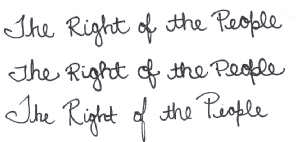 The Right of the People
The Right of the People
The Right of the People